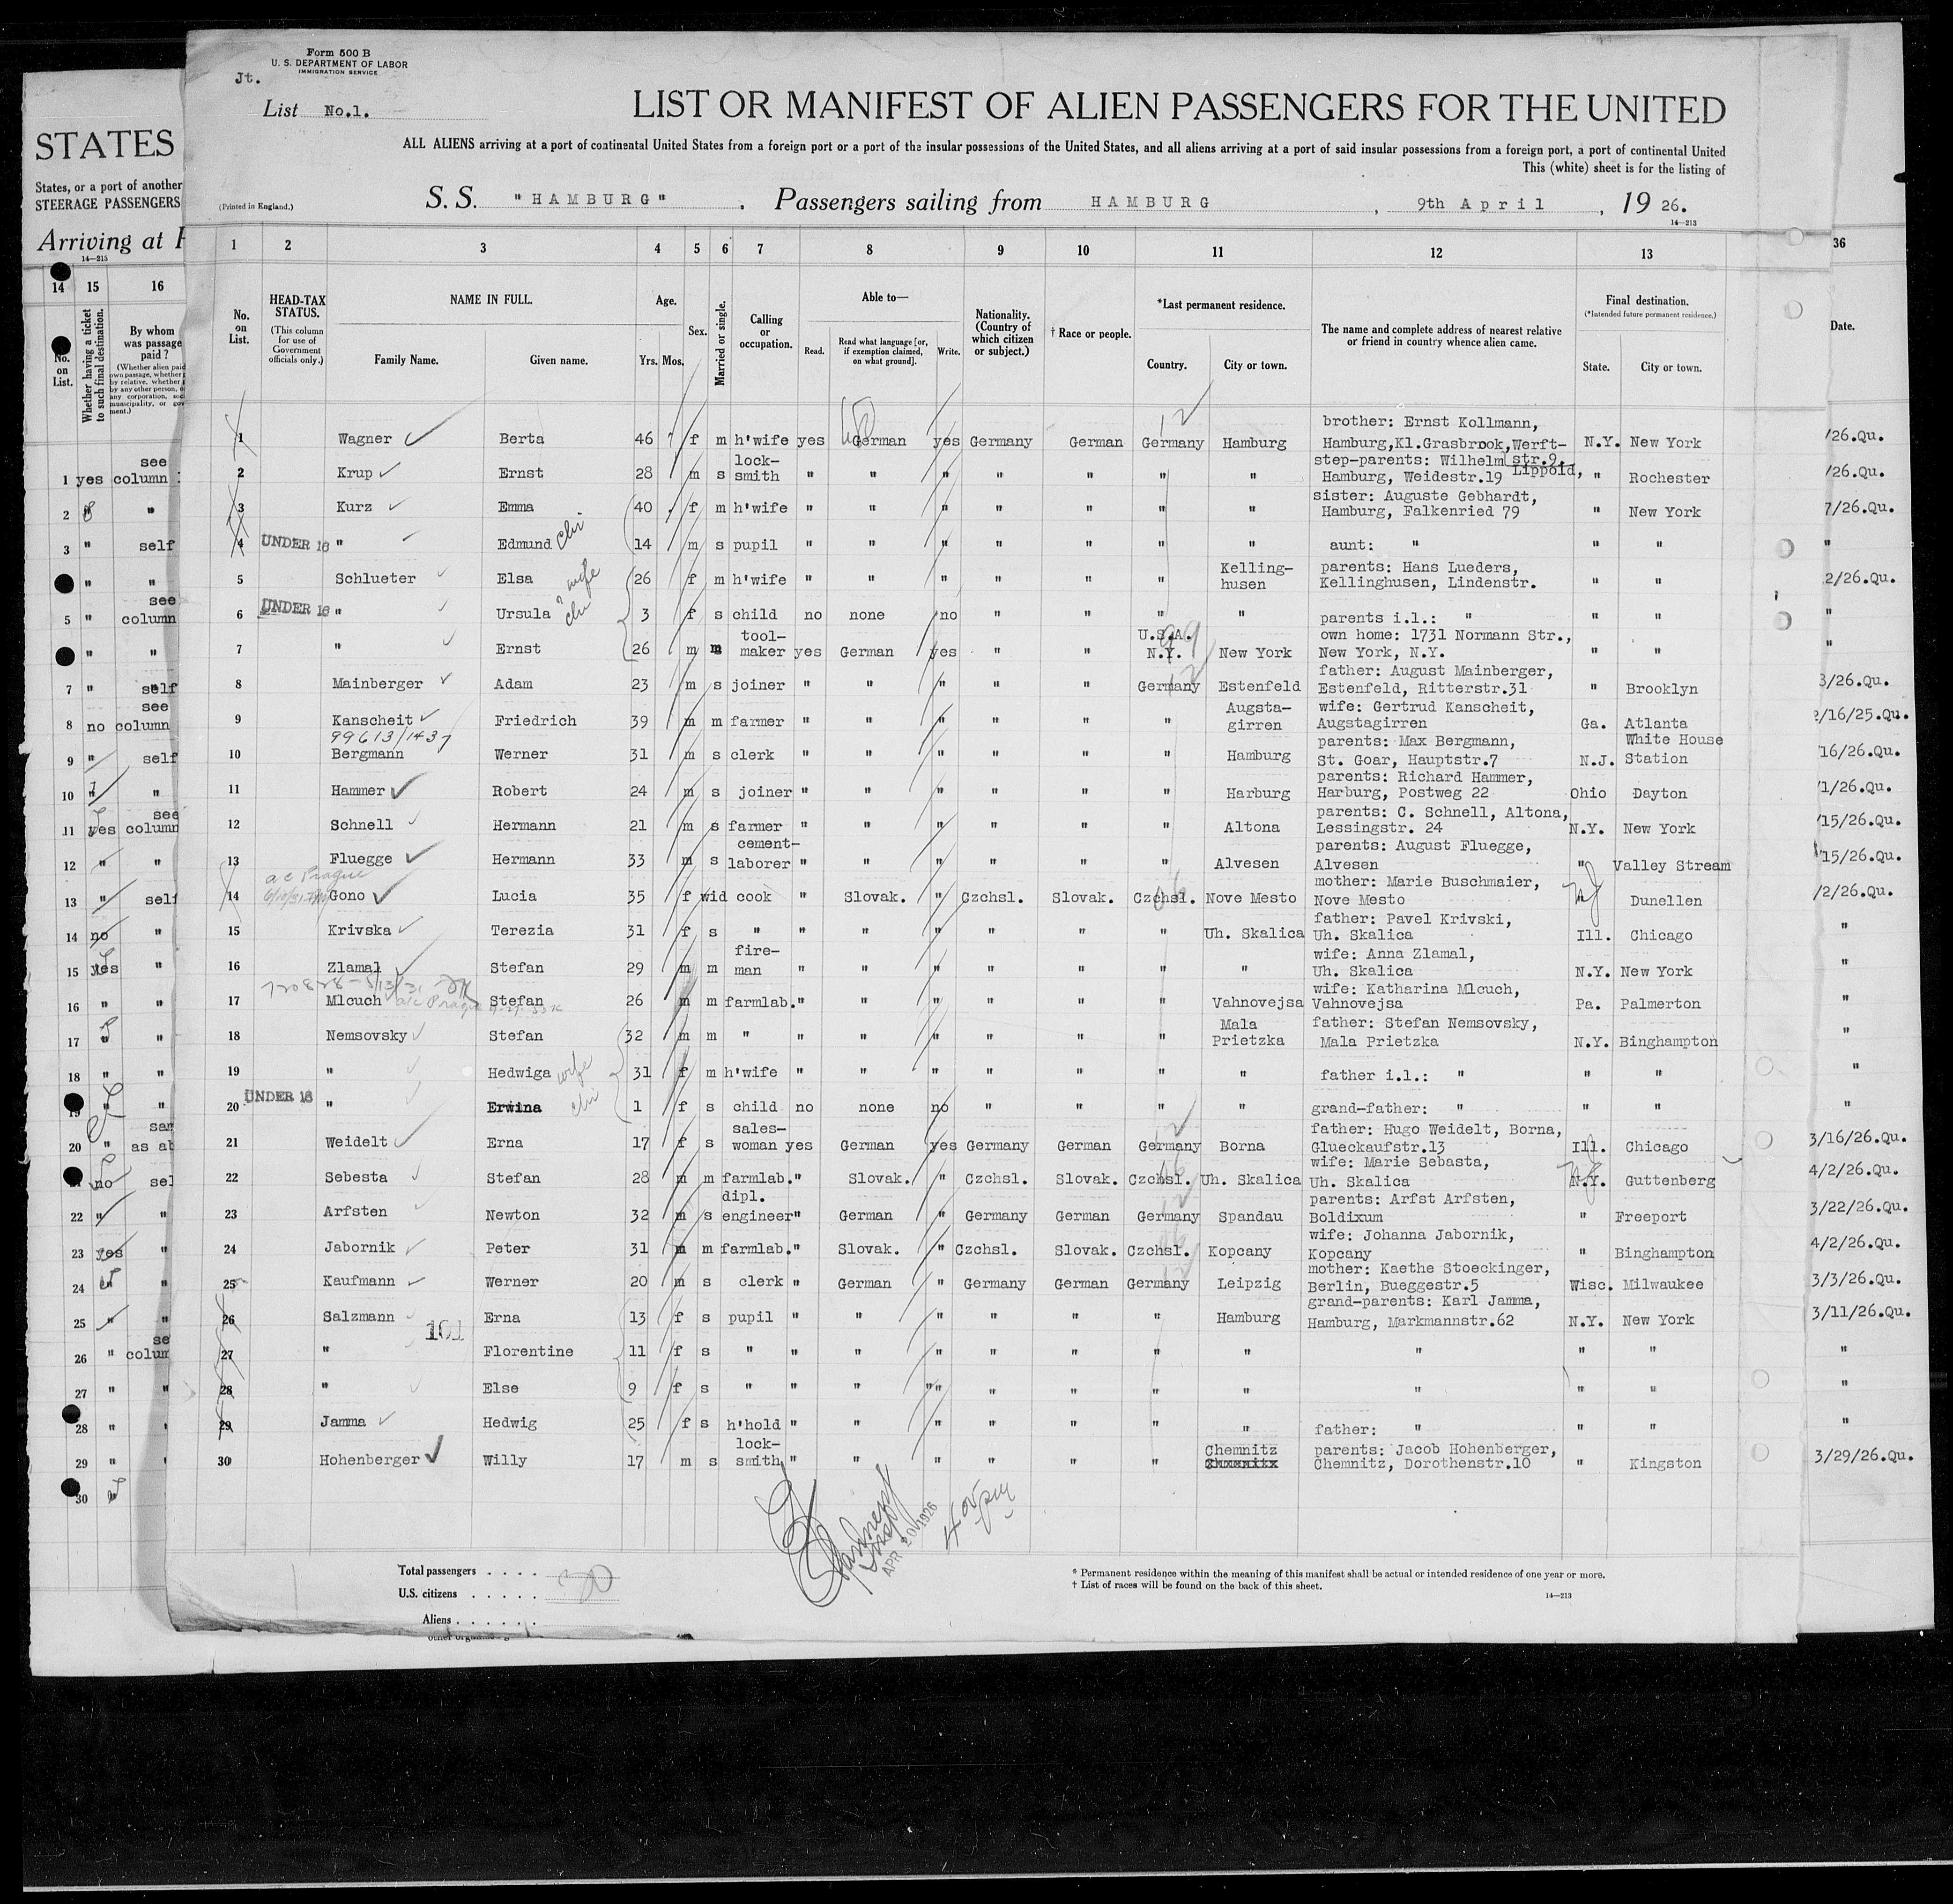 Form 500 B
U. S. DEPARTMENT OF LABOR
IMMIGRATION SERVICE
Jt.
List No.1.
LIST OR MANIFEST OF ALIEN PASSENGERS FOR THE UNITED
ALL ALIENS arriving at a port of continental United States from a foreign port or a port of the insular possessions of the United States, and all aliens arriving at a port of said insular possessions from a foreign port, a port of continental United
This (white) sheet is for the listing of
(Printed in England.)
S. S. "HAMBURG" . Passengers sailing from HAMBURG , 9th April , 19 26.
14—213
STATES
States, or a port of another
STEERAGE PASSENGERS
Arriving at
14—215
14 15 16
No. on List.
Whether having a ticket to such final destination.
By whom was passage paid?
1 yes see column
2 " "
3 " self
" "
5 " see column
" "
7 " self
8 no see column
9 " self
10 " "
11 yes see column
12 " "
13 " self
14 no "
15 yes "
16 " "
17 " "
18 " "
19 " "
20 " as ab
no sel
22 " "
23 yes "
24 " "
25 " "
26 " colum
27 " "
28 "
29 "
30 "
1 2 3 4 5 6 7 8 9 10 11 12 13
No. on List.
HEAD-TAX STATUS.
(This column for use of Government officials only.)
NAME IN FULL.
Family Name. Given name.
Age.
Yrs. Mos.
Sex.
Married or single.
Calling or occupation.
Able to—
Read. Read what language [or, if exemption claimed, on what ground]. Write.
Nationality. (Country of which citizen or subject.)
† Race or people.
*Last permanent residence.
Country. City or town.
The name and complete address of nearest relative or friend in country whence alien came.
Final destination.
(*Intended future permanent residence.)
State. City or town.
1 Wagner Berta 46 f m h'wife yes German yes Germany German Germany Hamburg brother: Ernst Kollmann, Hamburg,Kl.Grasbrook,Werft-str.9. N.Y. New York
2 Krup Ernst 28 m s lock-smith " " " " " " " step-parents: Wilhelm Lippold, Hamburg, Weidestr.19 " Rochester
3 Kurz Emma 40 f m h'wife " " " " " " " sister: Auguste Gebhardt, Hamburg, Falkenried 79 " New York
4 UNDER 16 " Edmund 14 m s pupil " " " " " " " aunt: " " "
5 Schlueter Elsa wife 26 f m h'wife " " " " " " Kelling-husen parents: Hans Lueders, Kellinghusen, Lindenstr. " "
6 UNDER 16 " Ursula 3 f s child no none no " " " " parents i.l.: " " "
7 " Ernst 26 m m tool-maker yes German yes " " U.S.A. N.Y. New York own home: 1731 Normann Str., New York, N.Y. " "
8 Mainberger Adam 23 m s joiner " " " " " Germany Estenfeld father: August Mainberger, Estenfeld, Ritterstr.31 " Brooklyn
9 Kanscheit Friedrich 39 m m farmer " " " " " " Augsta-girren wife: Gertrud Kanscheit, Augstagirren Ga. Atlanta
99613/1437
10 Bergmann Werner 31 m s clerk " " " " " " Hamburg parents: Max Bergmann, St. Goar, Hauptstr.7 N.J. White House Station
11 Hammer Robert 24 m s joiner " " " " " " Harburg parents: Richard Hammer, Harburg, Postweg 22 Ohio Dayton
12 Schnell Hermann 21 m s farmer " " " " " " Altona parents: C. Schnell, Altona, Lessingstr. 24 N.Y. New York
13 Fluegge Hermann 33 m s cement-laborer " " " " " " Alvesen parents: August Fluegge, Alvesen " Valley Stream
14 Gono Lucia 35 f wid cook " Slovak. " Czchsl. Slovak. Czchsl. Nove Mesto mother: Marie Buschmaier, Nove Mesto Dunellen
15 Krivska Terezia 31 f s " " " " " " " Uh. Skalica father: Pavel Krivski, Uh. Skalica Ill. Chicago
16 Zlamal Stefan 29 m m fire-man " " " " " " " wife: Anna Zlamal, Uh. Skalica N.Y. New York
17 Mlcuch Stefan 26 m m farmlab. " " " " " " Vahnovejsa wife: Katharina Mlcuch, Vahnovejsa Pa. Palmerton
18 Nemsovsky Stefan 32 m m " " " " " " " Mala Prietzka father: Stefan Nemsovsky, Mala Prietzka N.Y. Binghampton
19 " Hedwiga wife 31 f m h'wife " " " " " " " father i.l.: " " "
20 UNDER 16 " Erwina 1 f s child no none no " " " " grand-father: " " "
21 Weidelt Erna 17 f s sales-woman yes German yes Germany German Germany Borna father: Hugo Weidelt, Borna, Glueckaufstr.13 Ill. Chicago
22 Sebesta Stefan 28 m m farmlab. " Slovak. " Czchsl. Slovak. Czchsl. Uh. Skalica wife: Marie Sebasta, Uh. Skalica N.Y. Guttenberg
23 Arfsten Newton 32 m s dipl. engineer " German " Germany German Germany Spandau parents: Arfst Arfsten, Boldixum " Freeport
24 Jabornik Peter 31 m m farmlab. " Slovak. " Czchsl. Slovak. Czchsl. Kopcany wife: Johanna Jabornik, Kopcany " Binghampton
25 Kaufmann Werner 20 m s clerk " German " Germany German Germany Leipzig mother: Kaethe Stoeckinger, Berlin, Bueggestr.5 Wisc. Milwaukee
26 Salzmann Erna 13 f s pupil " " " " " " Hamburg grand-parents: Karl Jamma, Hamburg, Markmannstr.62 N.Y. New York
101
27 " Florentine 11 f s " " " " " " " " " " "
28 " Else 9 f s " " " " " " " " " " "
29 Jamma Hedwig 25 f s h'hold " " " " " " " father: " " "
30 Hohenberger Willy 17 m s lock-smith " " " " " " Chemnitz parents: Jacob Hohenberger, Chemnitz, Dorothenstr.10 " Kingston
APR 20 1926
Total passengers . . . . 30
U.S. citizens . . . . .
Aliens . . . . . .
* Permanent residence within the meaning of this manifest shall be actual or intended residence of one year or more.
† List of races will be found on the back of this sheet.
14—213
36
Date.
/26.Qu.
/26.Qu.
7/26.Qu.
"
2/26.Qu.
"
"
3/26.Qu.
2/16/25.Qu.
/16/26.Qu.
/1/26.Qu.
/15/26.Qu.
/15/26.Qu.
/2/26.Qu.
"
"
"
"
"
"
3/16/26.Qu.
4/2/26.Qu.
3/22/26.Qu.
4/2/26.Qu.
3/3/26.Qu.
3/11/26.Qu.
"
"
"
3/29/26.Qu.